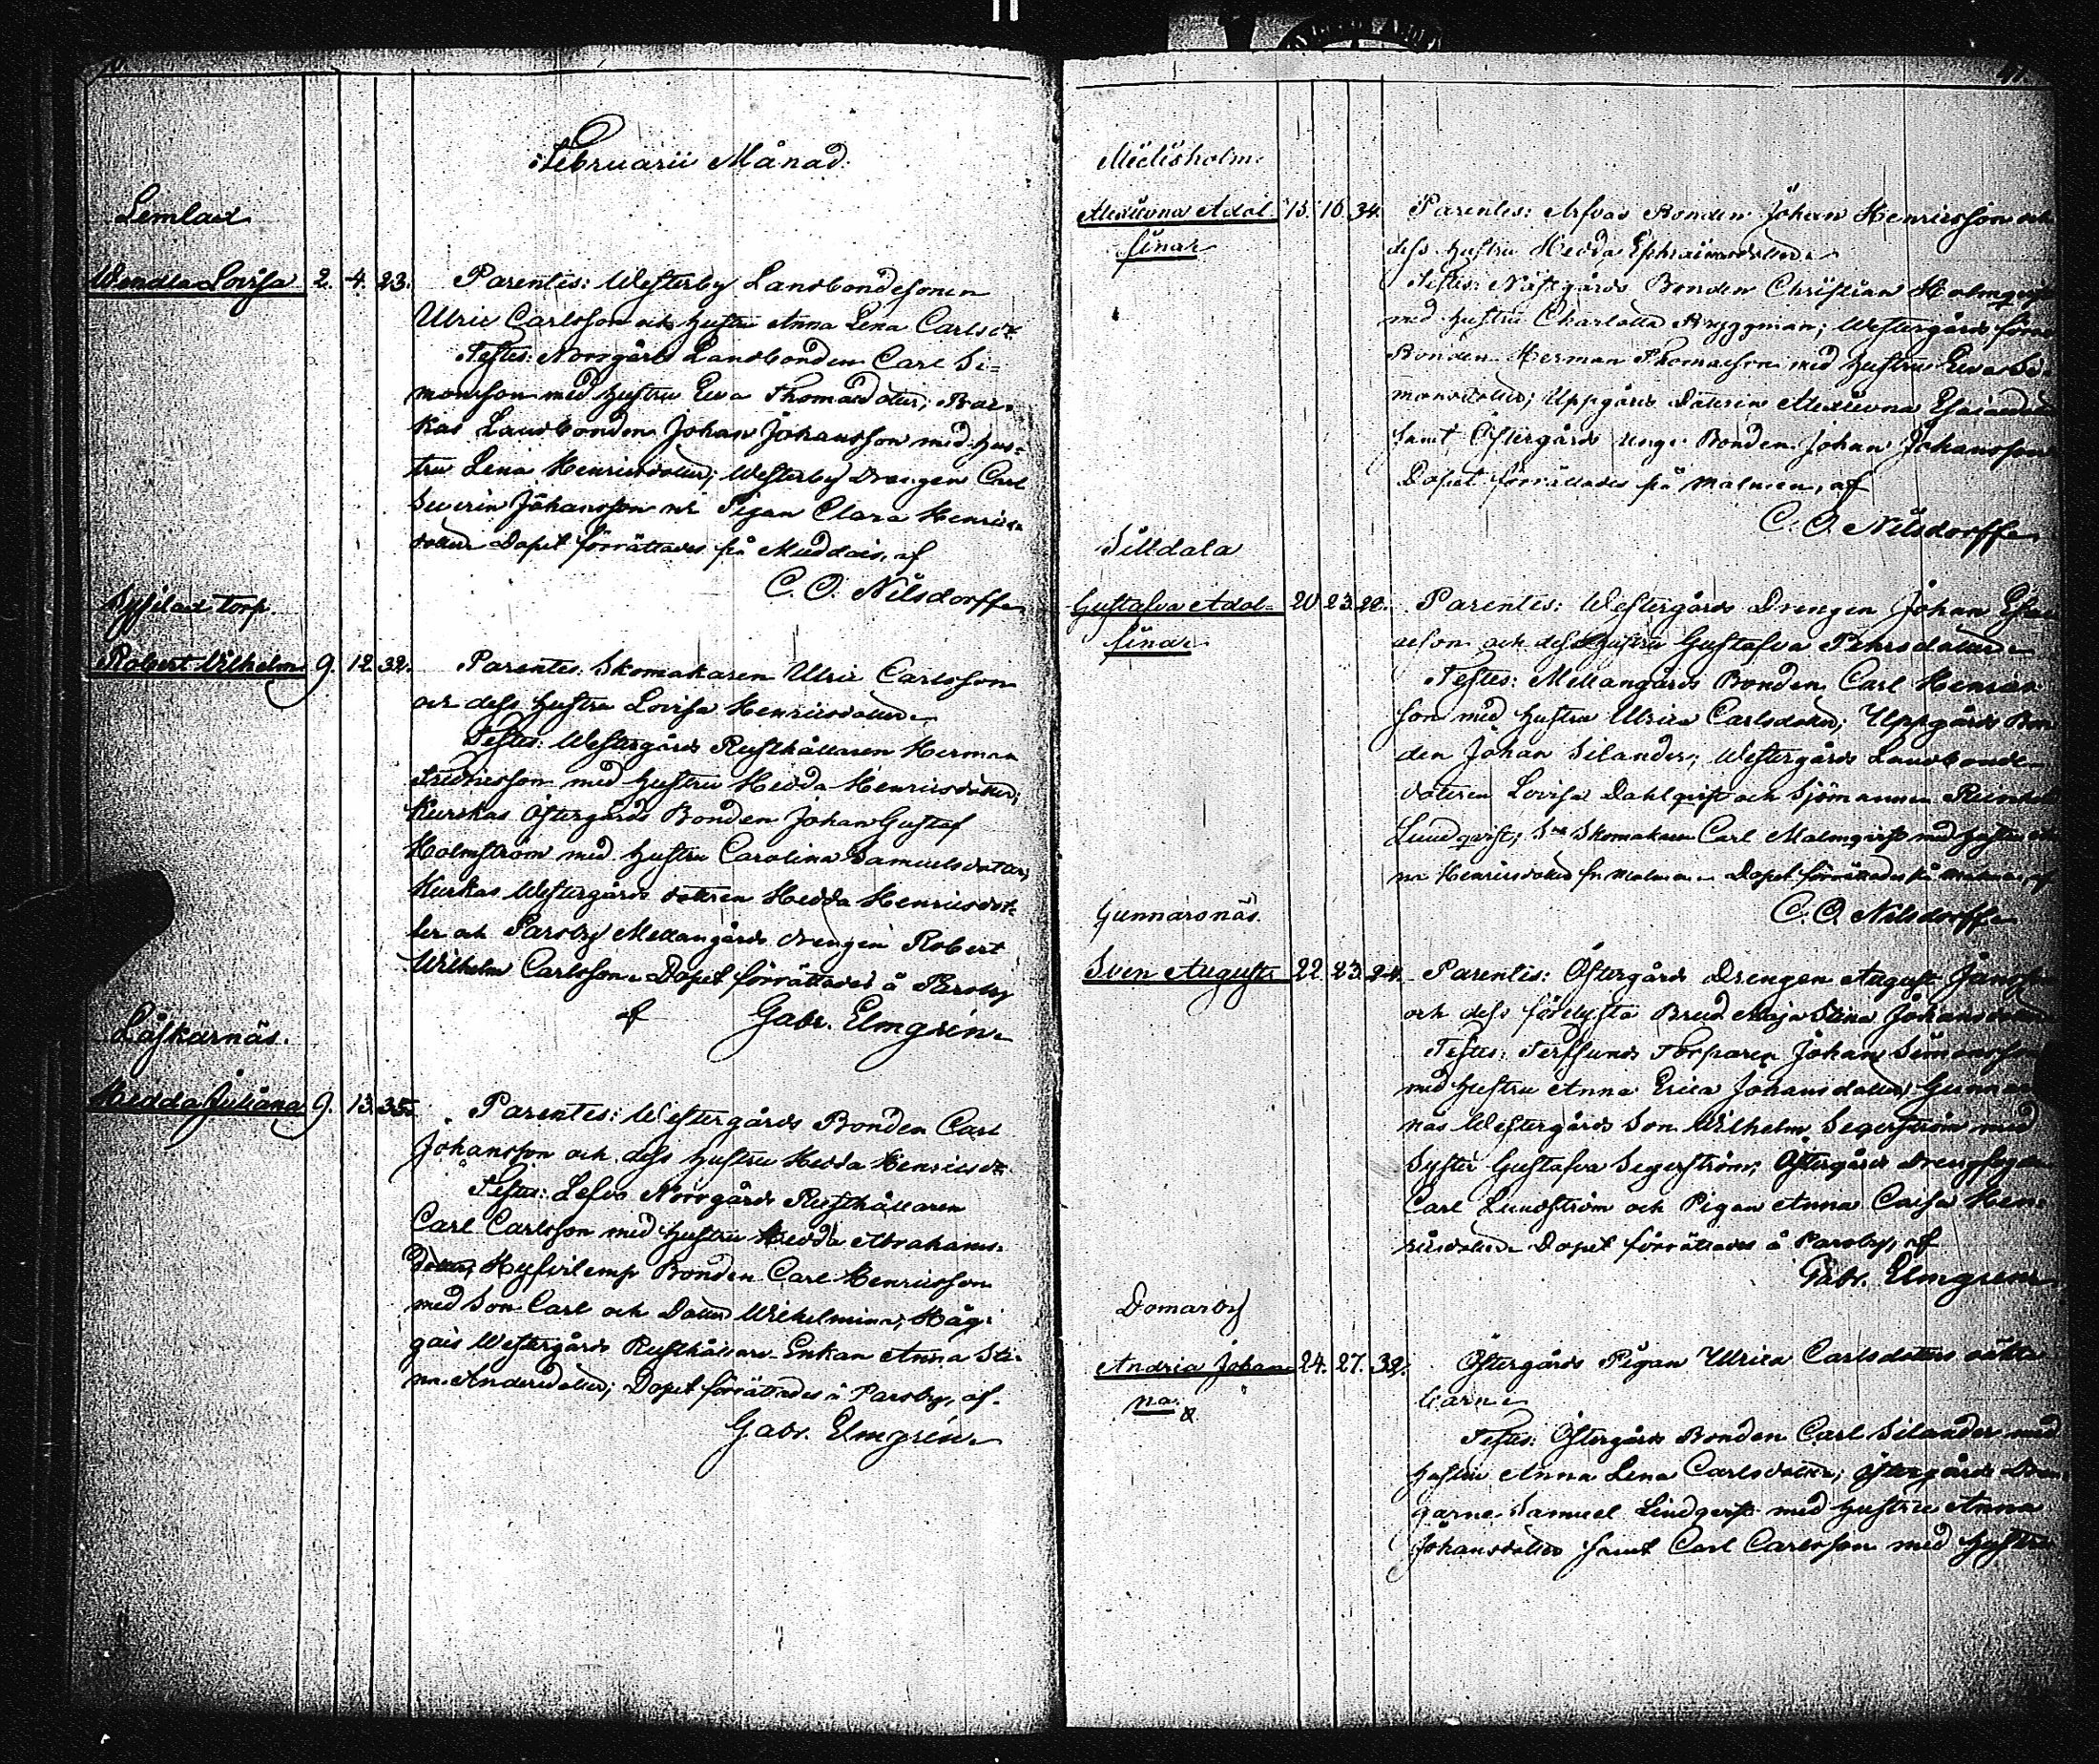 Februarii Månad.
Lemlax
Wendla Lovisa 2. 4. 23. Parentes: Westerby Landbondesonen
Ulric Carlsson och hustru Anna Lena Carlsdr
Testes: Norrgårds Landbonden Carl Si-
monsson med hustru Eva Thomasdotter;
kas Landbonden Johan Johansson med hus-
tru Lena Henricsdotter; Westerby Drengen Carl
Severin Johansson och Pigan Clara Henrics
dotter Dopet förrättades på Muddais, af
C. O. Nilsdorff
Sysilax torp.
Robert Wilhelm 9. 12. 32. Parentes: Skomakaren Ulric Carlsson
och dess hustru Lovisa Henricsdotter
Testes: Westergårds Rusthållaren Herman
Fredricsson med hustru Hedda Henricsdotter;
Kurkas Östergårds Bonden Johan Gustaf
Holmström med hustru Carolina Samuelsdotter;
Kurkas Westergårds dottren Hedda Henricsdot-
ter och Parsby Mellangårds drengen Robert
Wilhelm Carlsson. Dopet förrättades å Parsby
af Gabr. Elmgrén
Läskarnäs.
Hedda Juliana 9. 13. 35. Parentes: Westergårds Bonden Carl
Johansson och dess hustru Hedda Henricsdr
Testes: Lefvo Norrgårds Rusthållaren
Carl Carlsson med hustru Hedda Abrahams-
dotter; Bonden Carl Henricsson
med Son Carl och Dotter Wilhelmina; Häg-
gais Westergårds Rusthållare Enkan Anna Sti-
na Andersdotter; Dopet förrättades å Parsby, af
Gabr. Elmgrén
41
Mielisholm.
Alexievna Adol 15. 16. 34. Parentes: Arfvas Bonden Johan Henricsson och
finar dess hustru Hedda Ephraimsdotter
Testes: Nästgårds Bonden Christian Holmqvist
med hustru Charlotta Bryggman; Westergårds
Bonden Herman Thomasson med hustru Eva Si-
monsdotter; Uppgårds Dotteren Alexievna
samt Östergårds unge Bonden Johan Johansson
Dopet förrättades på Malmen, af
C. O. Nilsdorff
Silldala
Gustafva Adol- 20. 23. 20. Parentes: Westergårds Drengen Johan
fina och dess hustru Gustafva Pehrsdotter
Testes: Mellangårds Bonden Carl Henrics
son med hustru Ulrica Carlsdotter; Uppgårds Bon
den Johan Silander; Westergårds Landbonde
dotteren Lovisa Dahlqvist och Sjömannen
Lundqvist; Skomakaren Carl Malmqvist med hustru
na Henricsdotter fr. Malmen. Dopet förrättades på Malmen, af
C. O. Nilsdorff
Gunnarsnäs.
Sven August 22. 23. 24. Parentes: Östergårds Drengen August
och dess Brud Maja Stina Johansdotter
Testes: Torparen Johan Simonsson
med hustru Anna Erica Johansdotter; Gunnars
näs Westergårds Son Wilhelm Segerström med
Syster Gustafva Segerström; Östergårds Drengfogden
Carl Lundström och Pigan Anna Caisa Hen-
ricsdotter. Dopet förrättades å Parsby, af
Gabr. Elmgren
Domarby
Andria Johan 24. 27. 32. Östergårds Pigan Ulrica Carlsdotters oäkta
na. barn.
Testes: Östergårds Bonden Carl Silander med
hustru Anna Lena Carlsdotter; Östergårds Dren
garne Samuel Lindqvist med hustru Anna
Johansdotter samt Carl Carlsson med hustru